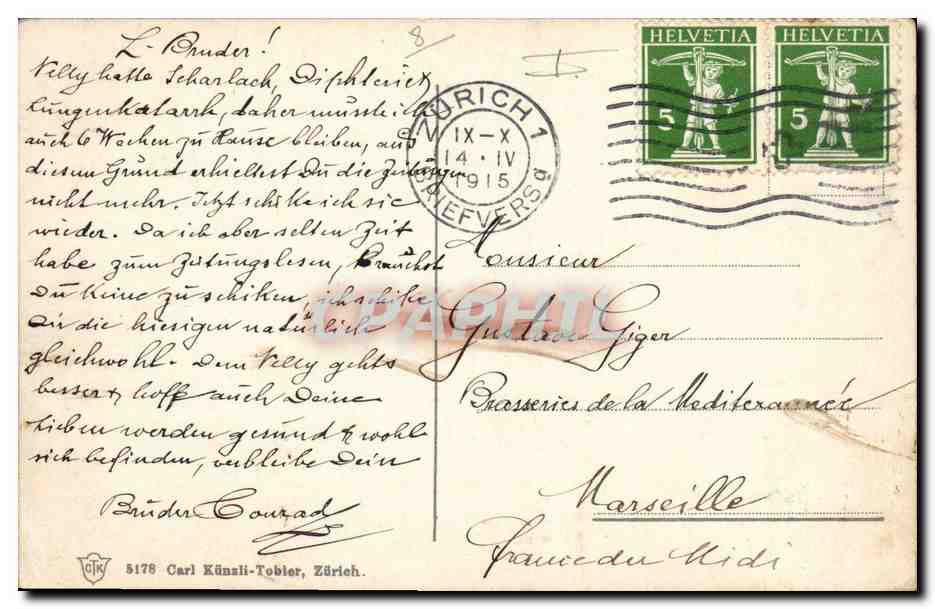 L. Bruder!
Nelly hatte Scharlach, Diphterie &
Lungenkatarrh, daher musste ich
auch 6 Wochen zu Hause bleiben, aus
diesem Grund erhieltest Du die Zeitungen
nicht mehr. Jetzt schike ich sie
wieder. Da ich aber selten Zeit
habe zum Zeitungslesen, brauchst
Du keine zu schiken, ich schike
dir die hiesigen natürlich
gleichwohl. Dem Nelly gehts
besser & hoffe auch Deine
Lieben werden gesund & wohl
sich befinden, verbleibe Dein
Bruder Conrad
CTK
5178 Carl Künzli-Tobler, Zürich.
8
ZÜRICH 1
IX-X
14·IV
1915
BRIEFVERS. d
HELVETIA
5
HELVETIA
5
Monsieur
Gustave Giger
Brasseries de la Mediterannée
Marseille
France du Midi
CPAPHIL